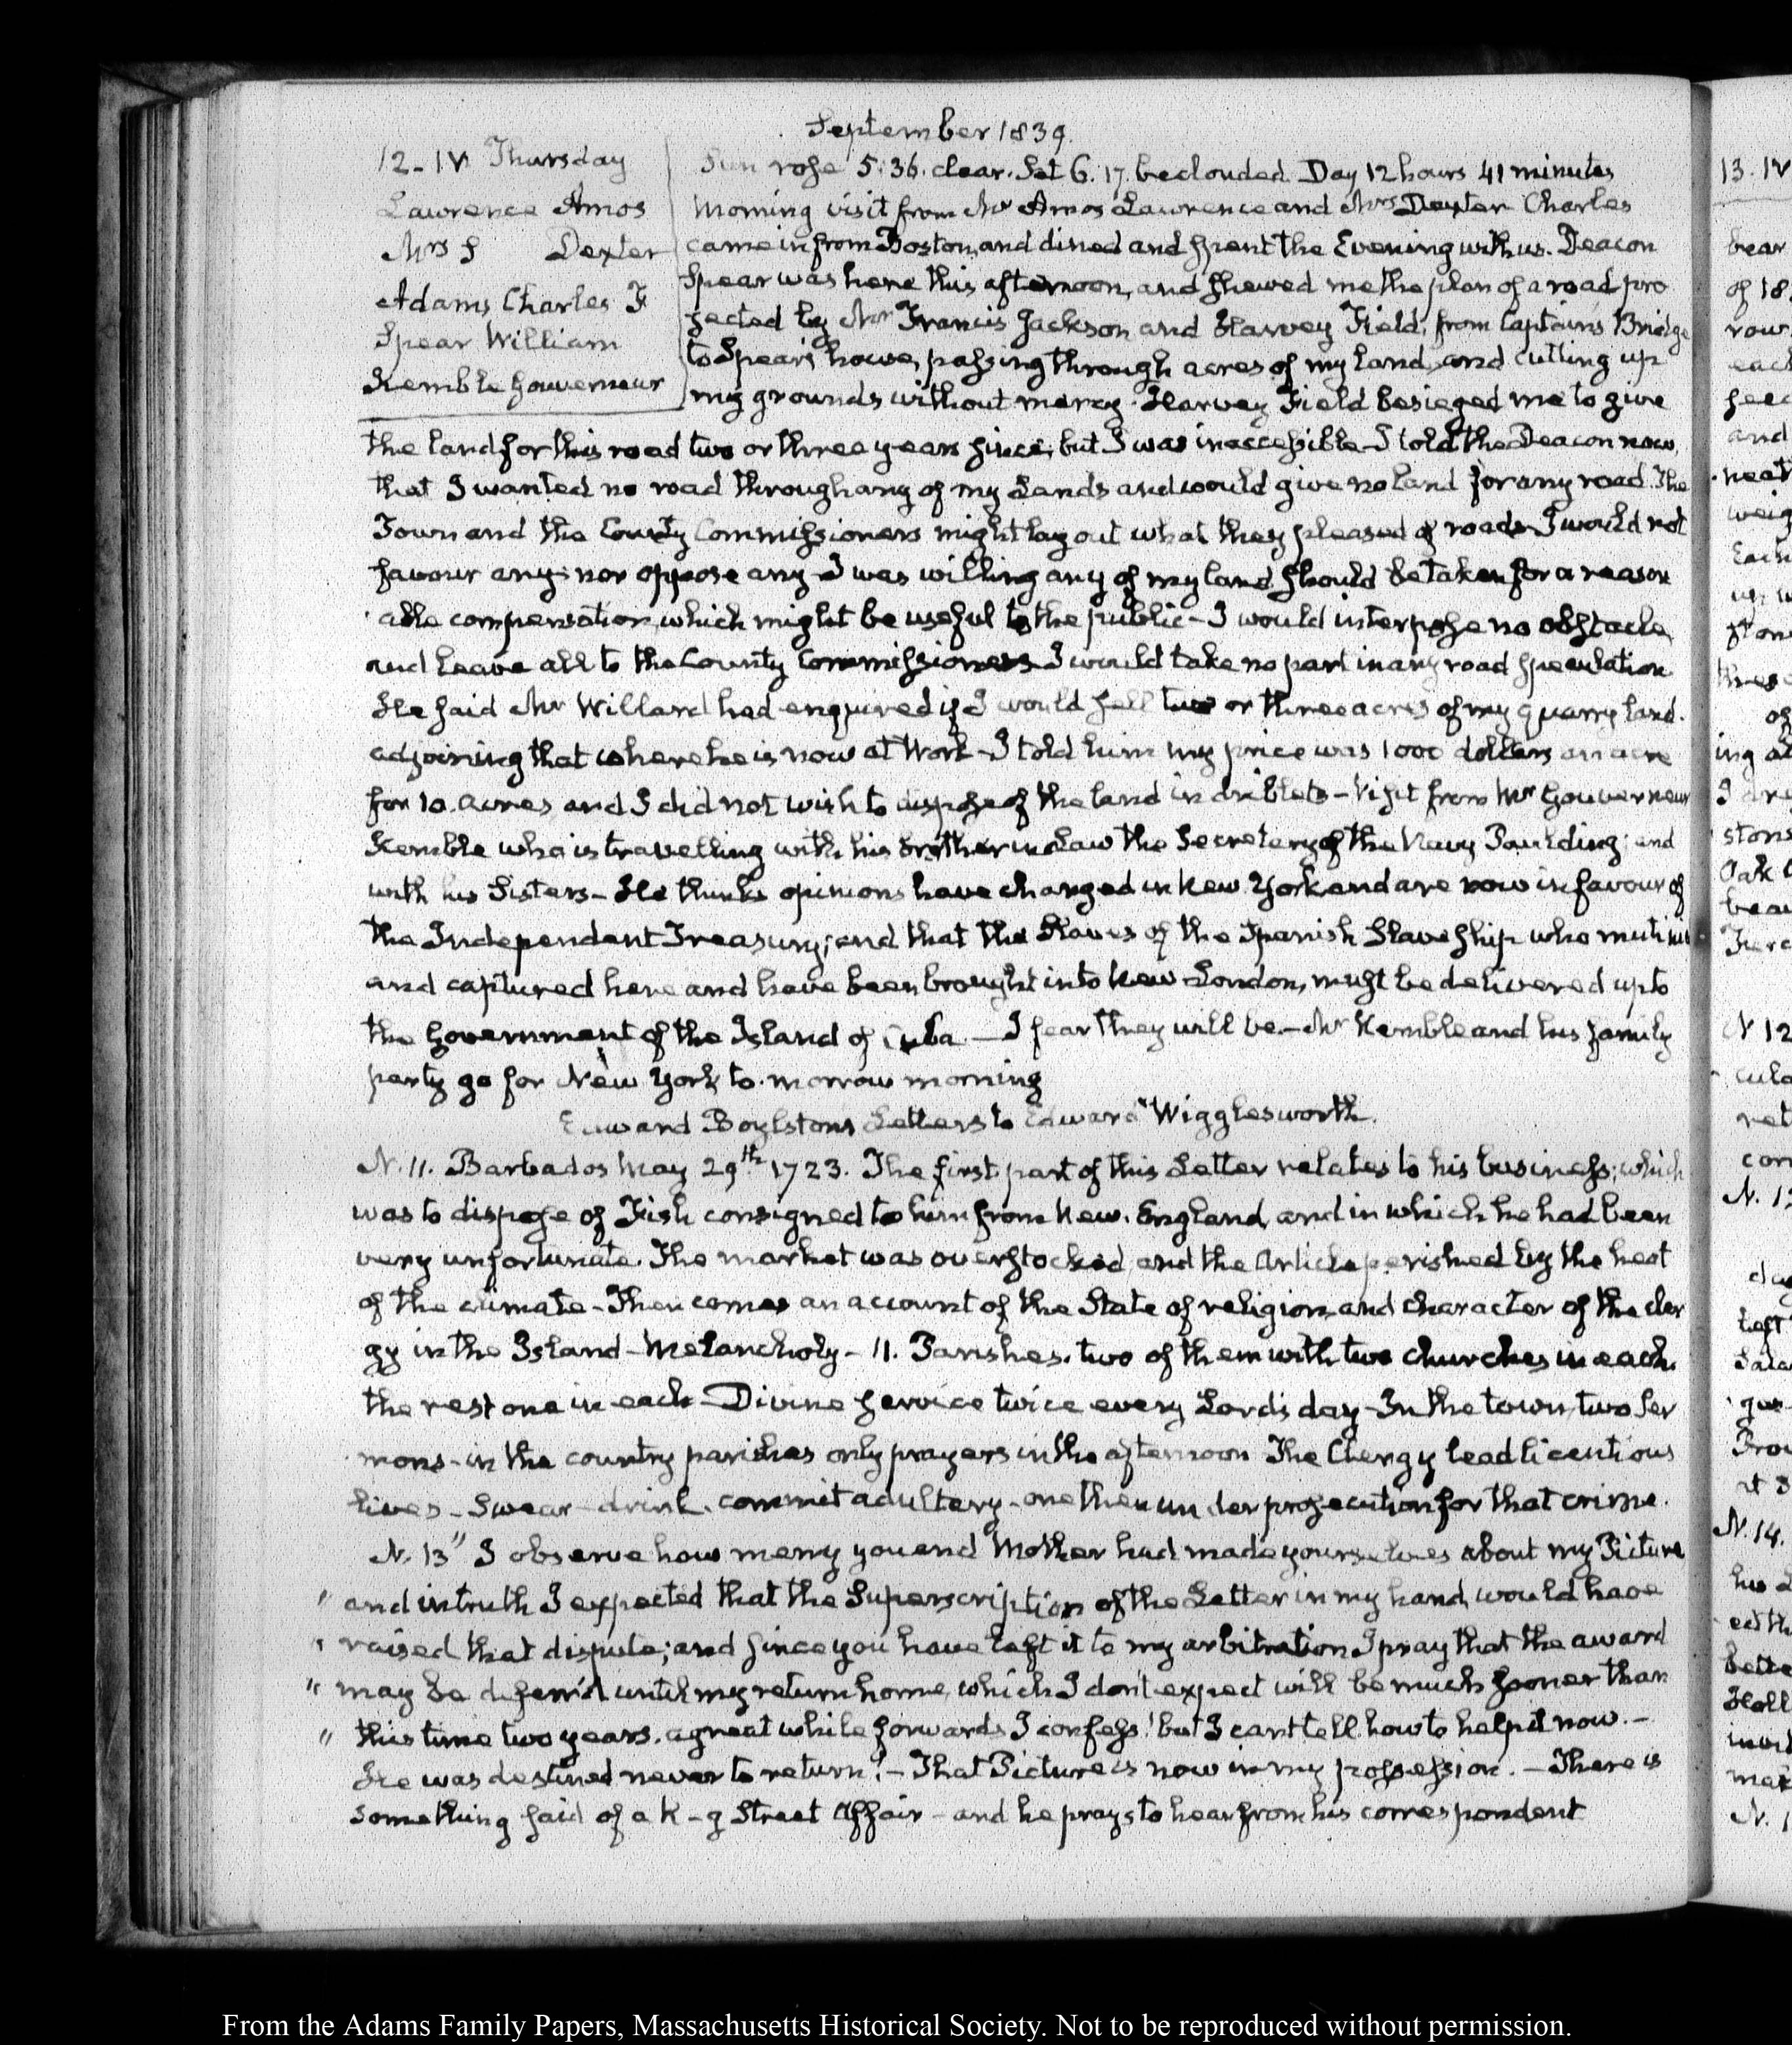 September 1839.
12. IV. Thursday
Lawrence Amos
Mrs S Dexter
Adams Charles F
Spear William
Kemble Gouverneur
Sun rose 5:36. clear. Set 6.17. beclouded. Day 12 hours 41 minutes
Morning visit from Mr Amos Lawrence and Mrs Dexter Charles
came in from Boston, and dined and spent the Evening with us. Deacon
Spear was here this afternoon, and shewed me the plan of a road pro
jected by Mr Francis Jackson and Harvey Field, from Captains Bridge
to Spear's house, passing through acres of my land and cutting up
my grounds without mercy. Harvey Field besieged me to give
the land for this road two or three years since; but I was inaccessible—I told the Deacon now,
that I wanted no road through any of my Lands and would give no land for any road. The
Town and the County Commissioners might lay out what they pleased of roads I would not
favour any; nor oppose any—I was willing any of my land should be taken for a reason
able compensation, which might be useful to the public—I would interpose no obstacle
and leave all to the County Commissioners I would take no part in any road speculation
He said Mr Willard had enquired if I would sell two or three acres of my quarry land.
adjoining that where he is now at Work—I told him my price was 1000 dollars an acre
for 10. acres, and I did not wish to dispose of the land in driblets—Visit from Mr Gouverneur
Kemble who is travelling with his brother in Law the Secretary of the Navy Paulding; and
with his Sisters—He thinks opinions have changed in New York and are now in favour of
the Independent Treasury; and that the Slaves of the Spanish Slave Ship who
and captured here and have been brought into New London, must be delivered up to
the Government of the Island of Cuba.—I fear they will be.—Mr Kemble and his family
party go for New York, to-morrow morning
Edward Boylston's Letters to Edward Wigglesworth.
N. 11. Barbados May 29th 1723. The first part of this Letter relates to his business; which
was to dispose of Fish consigned to him from New-England, and in which he had been
very unfortunate. The market was overstocked, and the Article perished by the heat
of the climate—Then comes an account of the State of religion, and character of the cler
gy in the Island—Melancholy—11. Parishes. two of them with two churches in each.
the rest one in each—Divine service twice every Lord's day—In the town, two ser
mons—in the country parishes only prayers in the afternoon The Clergy lead licentious
lives—swear—drink. commit adultery—one then under prosecution for that crime.
N. 13 " I observe how merry you and Mother had made yourselves about my Picture
" and in truth I expected that the Superscription of the Letter in my hand, would have
" raised that dispute; and since you have left it to my arbitration I pray that the award
" may be deferr'd until my return home, which I don't expect will be much sooner than
" this time two years. a great while forwards I confess! but I cant tell how to help it now.—
He was destined never to return!—That Picture is now in my possession.—There is
something said of a K—g Street Affair—and he prays to hear from his correspondent
13. IV
bear
of 18
row
each
feed
and
neat
weig
Each
ing
stone
Oak
N 12
cula
ret
N. 13
left
Pro
N. 14.
his
bette
From the Adams Family Papers, Massachusetts Historical Society. Not to be reproduced without permission.